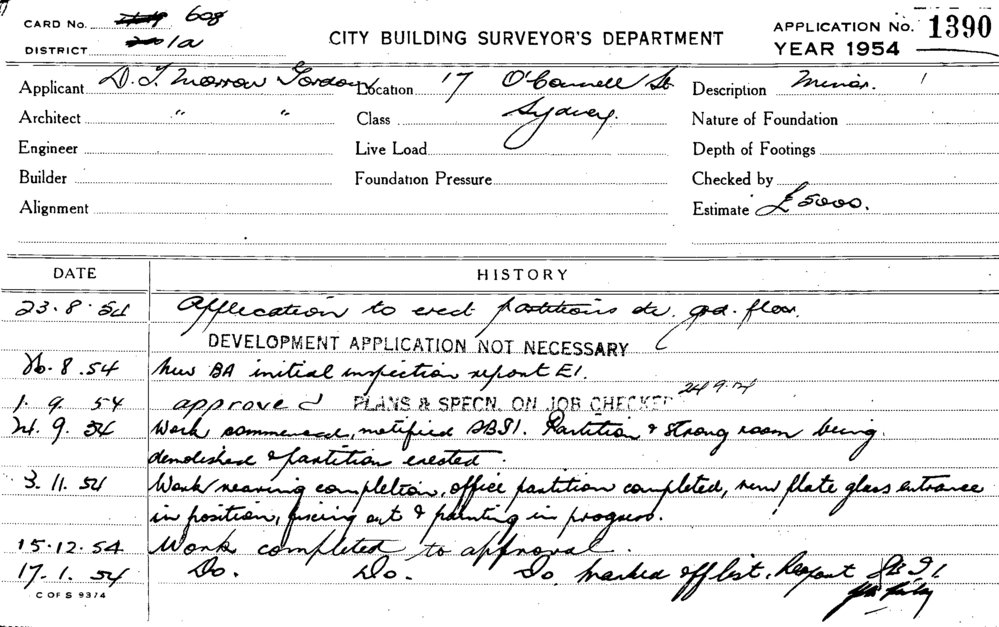 CARD No. 608
DISTRICT 1a
CITY BUILDING SURVEYOR'S DEPARTMENT
APPLICATION No. 1390
YEAR 1954
Applicant D. T. Morrow Gordon Location 17 O'Connell St Description Minor.
Architect " " Class Sydney. Nature of Foundation
Engineer Live Load Depth of Footings
Builder Foundation Pressure Checked by
Alignment Estimate £5000.
DATE HISTORY
23.8.54 Application to erect partitions etc. grd. floor.
DEVELOPMENT APPLICATION NOT NECESSARY
26.8.54 New BA initial inspection report E1.
1.9.54 approved PLANS & SPECN. ON JOB CHECKED 24 9.54
24.9.54 Work commenced, notified Partition & strong room being
demolished & partition erected.
3.11.54 Work nearing completion, office partition completed, new plate glass entrance
in position, fixing out & painting in progress.
15.12.54 Work completed to approval.
17.1.54 Do. Do. Do. marked off list. Report
C OF S 9374